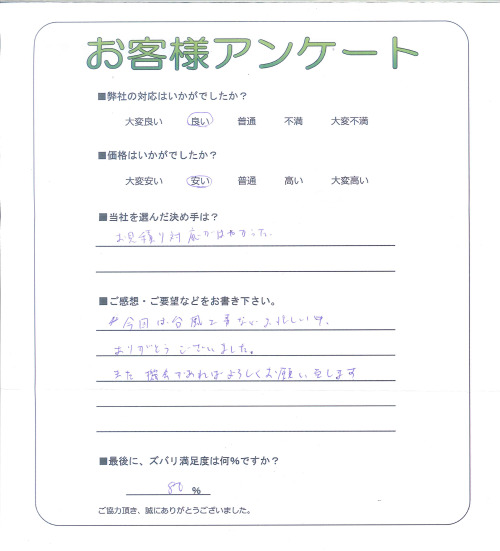 お客様アンケート
■弊社の対応はいかがでしたか？
大変良い 良い 普通 不満 大変不満
■価格はいかがでしたか？
大変安い 安い 普通 高い 大変高い
■当社を選んだ決め手は？
お見積り対応がはやかった。
■ご感想・ご要望などをお書き下さい。
今回は台風工事などお忙しい中、
ありがとうございました。
また機会があればよろしくお願い致します
■最後に、ズバリ満足度は何%ですか？
80 %
ご協力頂き、誠にありがとうございました。